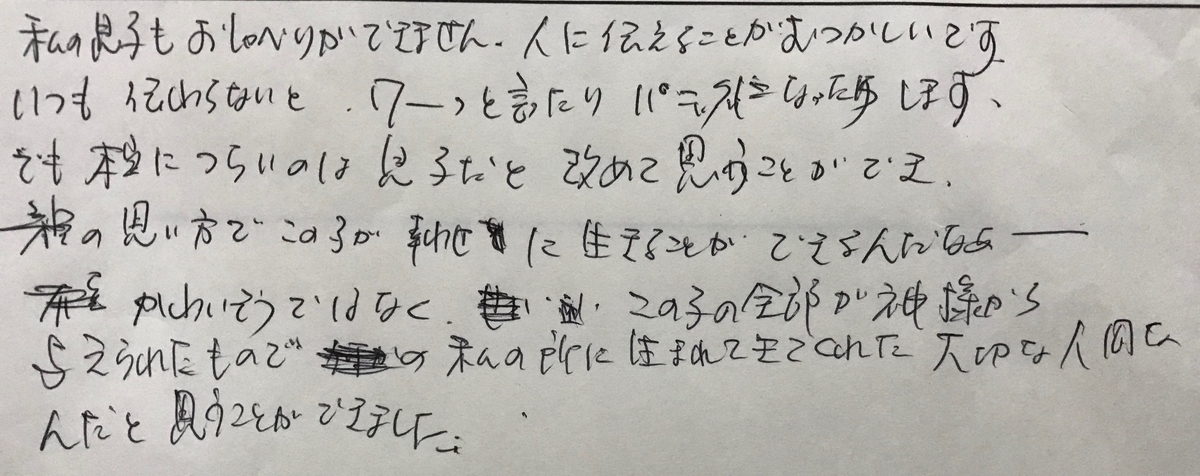 私の息子もおしゃべりができません。人に伝えることがむつかしいです
いつも伝わらないと、ワーっと言ったりパニックになったりします、
でも本当につらいのは息子だと改めて思うことができ、
の思い方でこの子が幸わせに生きることができるんだなぁー
かわいそうではなく、この子の全部が神様から
与えられたもので の私の所に生まれて来てくれた大切な人間な
んだと思うことができました。